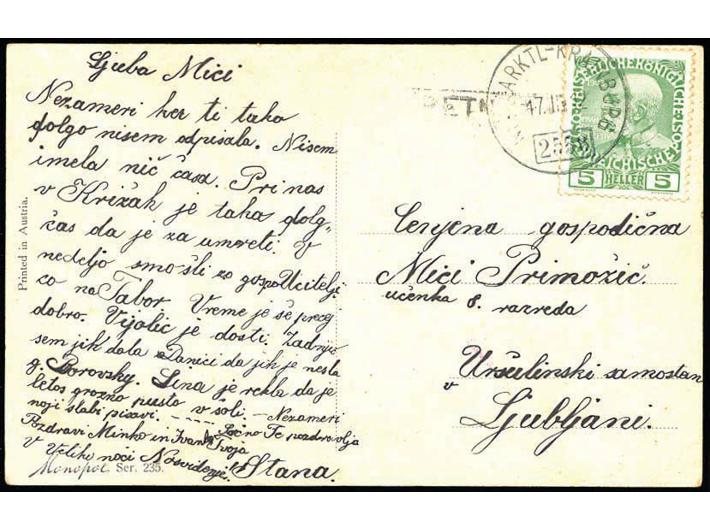 Ljuba Mici
Nezameri ker ti tako
dolgo nisem odpisala. Nisem
imela nič časa. Pri nas
v Križah je tako dolg-
čas da je za umreti. V
nedeljo smo šli z gospo Učitelji
co na Tabor Vreme je še precej
dobro. Vijolic je dosti. Zadnjič
sem jih dala Danici da jih je nesla
g. Borovsky. Lina je rekla da je
letos grozno pusto v šoli. - Nezameri
moji slabi pisavi. - - - - Srčno Te pozdravlja
Pozdravi Minko in Ivanko Tvoja
v Veliki noči Nasvidenje! Stana.
Monopol. Ser. 235.
Printed in Austria.
NEUMARKTL-KRAINBURG
17.III
255
5 HELLER 5
Cenjena gospodična
Mici Primožič.
učenka 8. razreda
Uršulinski samostan
v
Ljubljani.